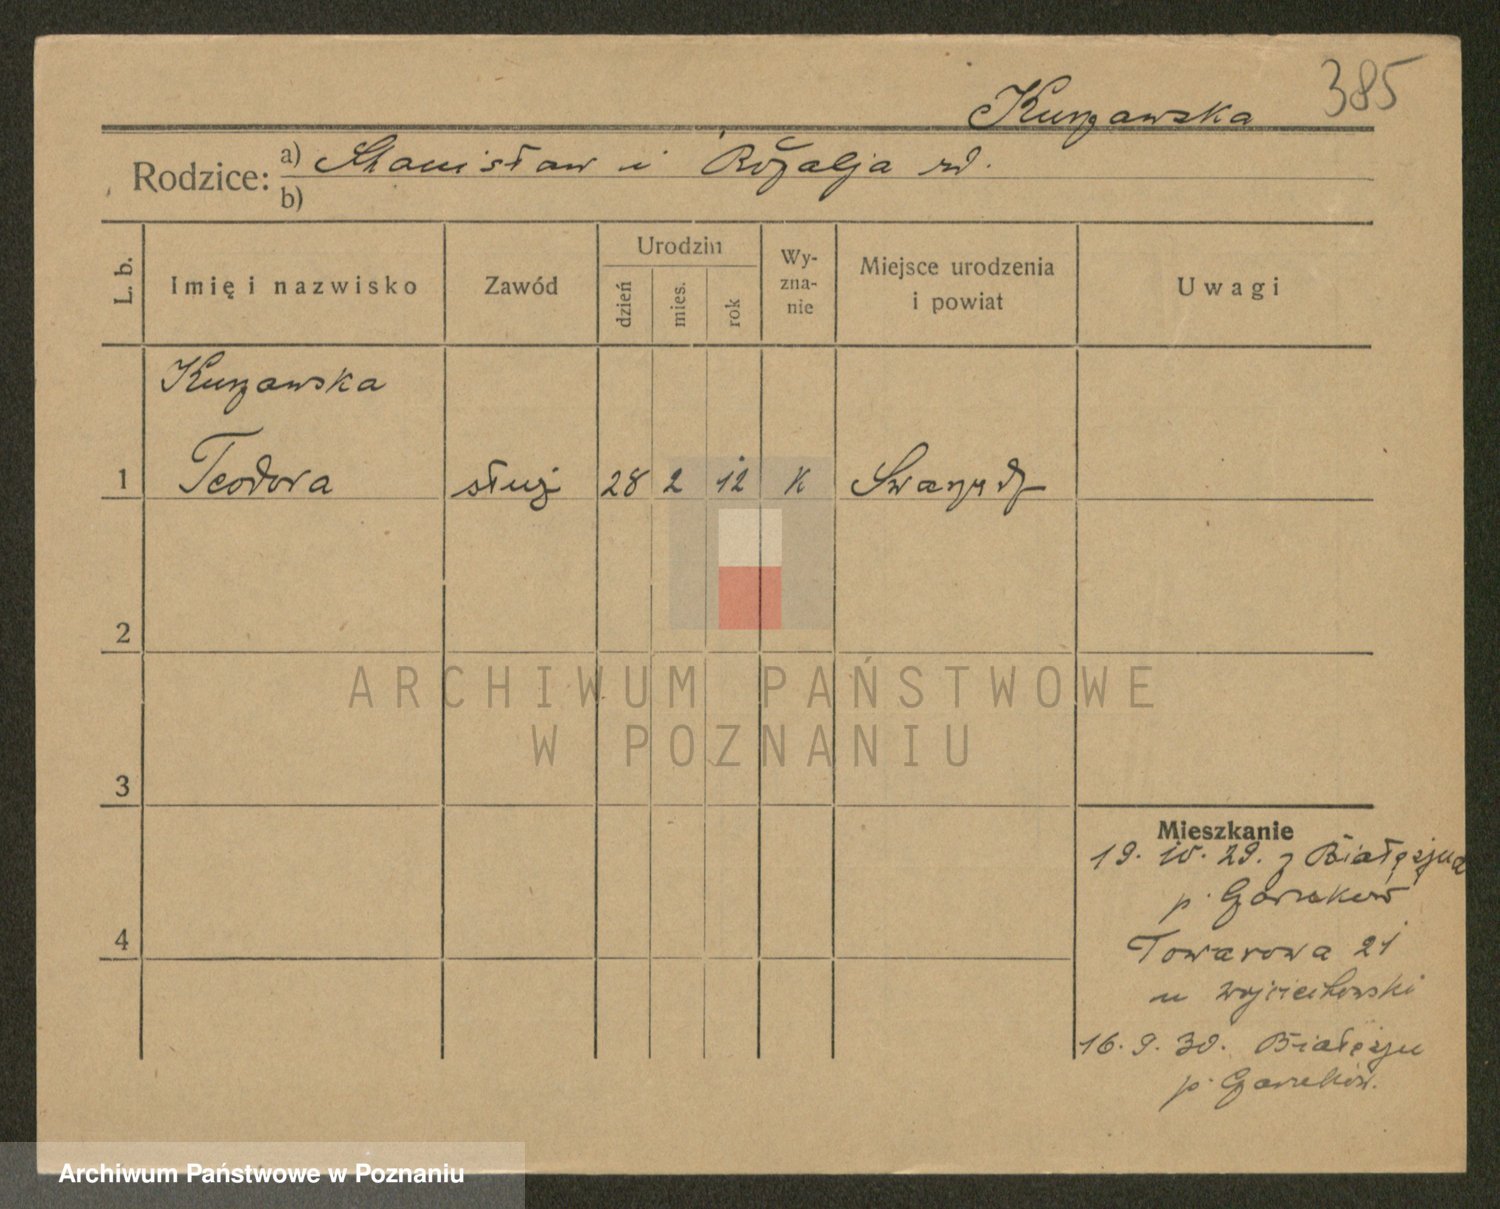 385
Kurzawska
Rodzice: a) Stanisław i Rozalja rd.
b)
L. b. Imię i nazwisko Zawód Urodzin dzień mies. rok Wyznanie Miejsce urodzenia i powiat Uwagi
Kurzawska
1 Teodora służ 28 2 12 K
2
3
4
Mieszkanie
19. 10. 29. z
p. Czarnków
Towarowa 21
u Wojciechowski
16. 9. 30.
p. Czarnków.
ARCHIWUM PAŃSTWOWE
W POZNANIU
Archiwum Państwowe w Poznaniu